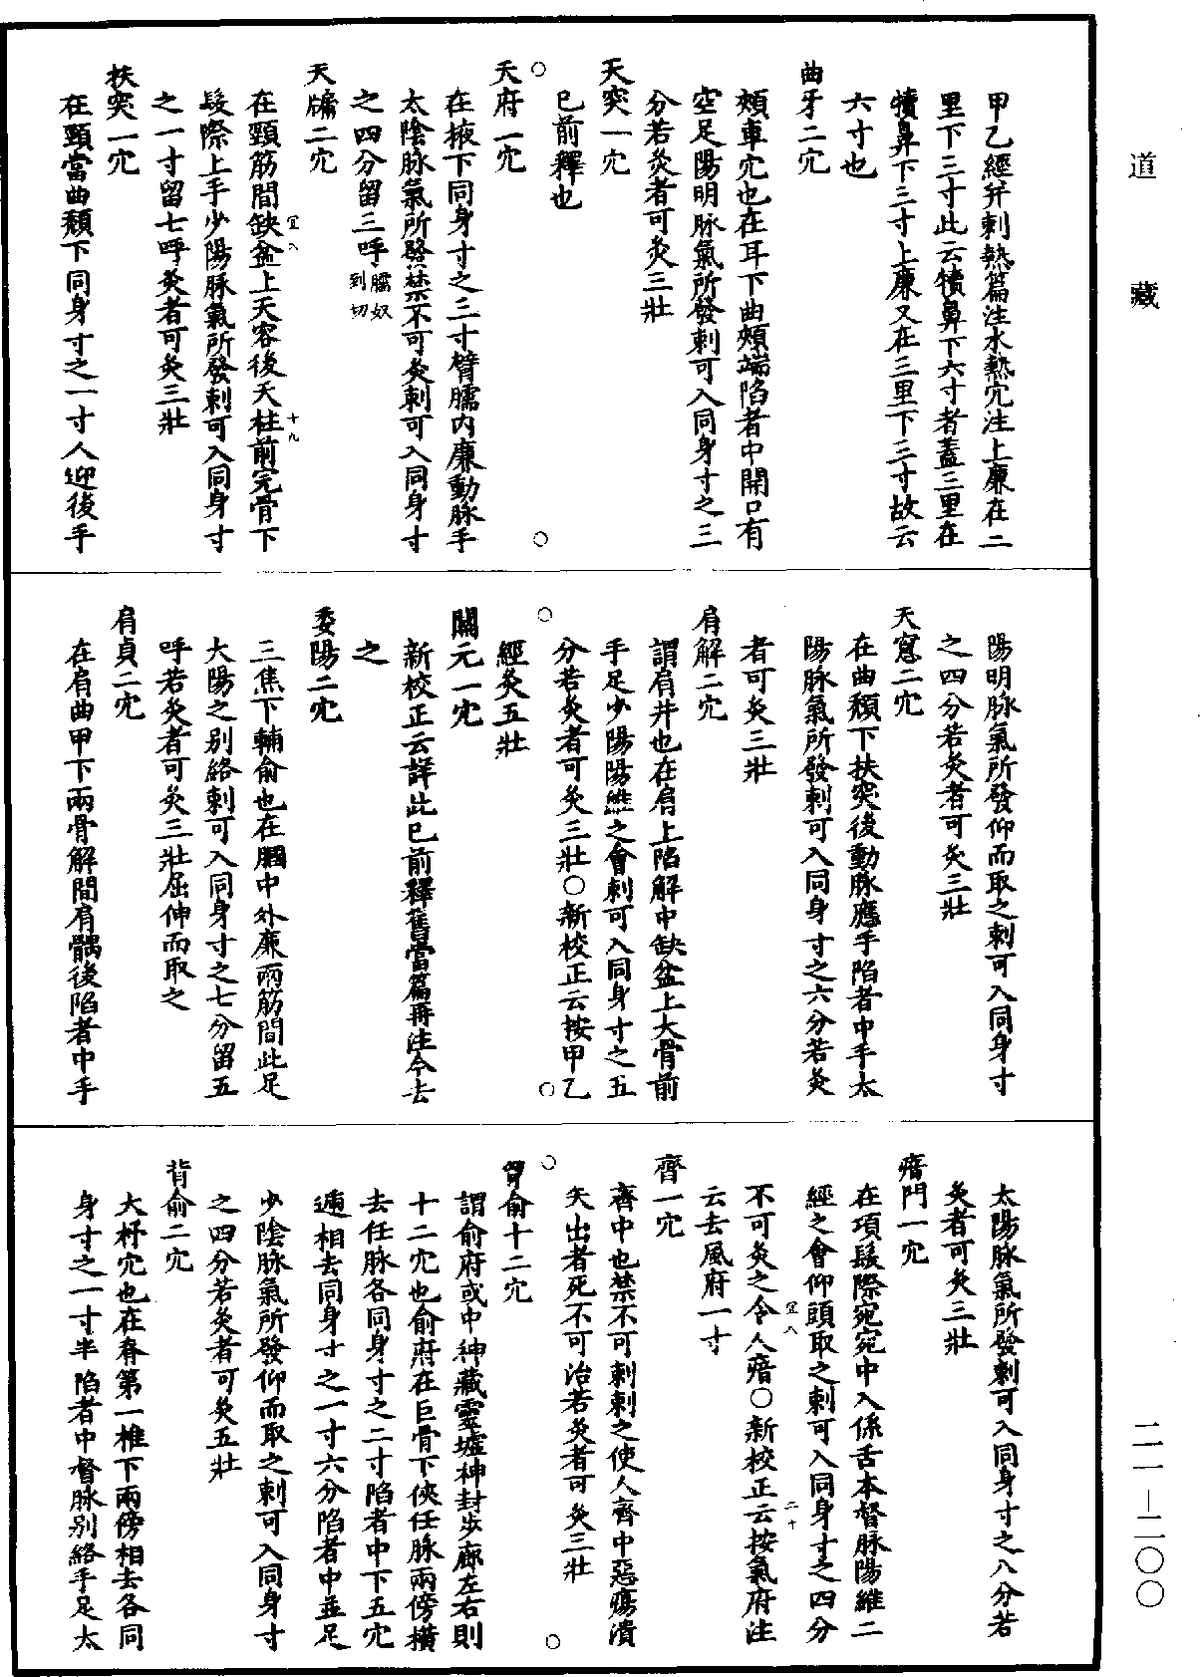 道藏
甲乙經并刺熱篇注水熱穴注上廉在二
里下三寸此云犢鼻下六寸者蓋三里在
犢鼻下三寸上廉又在三里下三寸故云
六寸也
曲牙二穴
頰車穴也在耳下曲頰端陷者中開口有
空足陽明脉氣所發刺可入同身寸之三
分若灸者可灸三壯
天突一穴
已前釋也
○
○
天府一穴
在掖下同身寸之三寸臂臑內廉動脉手
太陰脉氣所發禁不可灸刺可入同身寸
之四分留三呼臑奴到切
天牖二穴
在頸筋間缺盆上天容後天柱前完骨下
宜八
十九
髮際上手少陽脉氣所發刺可入同身寸
之一寸留七呼灸者可灸三壯
扶突一穴
在頸當曲頰下同身寸之一寸人迎後手
陽明脉氣所發仰而取之刺可入同身寸
之四分若灸者可灸三壯
天窻二穴
在曲頰下扶突後動脉應手陷者中手太
陽脉氣所發刺可入同身寸之六分若灸
者可灸三壯
肩解二穴
謂肩井也在肩上陷解中缺盆上大骨前
手足少陽陽維之會刺可入同身寸之五
分若灸者可灸三壯○新校正云按甲乙
○
○
經灸五壯
關元一穴
新校正云詳此已前釋舊當篇再注今去
之
委陽二穴
三焦下輔俞也在膕中外廉兩筋間此足
大陽之别絡刺可入同身寸之七分留五
呼若灸者可灸三壯屈伸而取之
肩貞二穴
在肩曲甲下兩骨解間肩髃後陷者中手
太陽脉氣所發刺可入同身寸之八分若
灸者可灸三壯
瘖門一穴
在項髮際宛宛中入係舌本督脉陽維二
經之會仰頭取之刺可入同身寸之四分
不可灸之令人瘖○新校正云按氣府注
宜八
二十
云去風府一寸
齊一穴
齊中也禁不可刺刺之使人齊中惡瘍潰
矢出者死不可治若灸者可灸三壯
○
○
俞十二穴
謂俞府或中神藏靈墟神封步廊左右則
十二穴也俞府在巨骨下俠任脉兩傍橫
去任脉各同身寸之二寸陷者中下五穴
遞相去同身寸之一寸六分陷者中並足
少陰脉氣所發仰而取之刺可入同身寸
之四分若灸者可灸五壯
背俞二穴
大杼穴也在脊第一椎下兩傍相去各同
身寸之一寸半陷者中督脉别絡手足太
二一—二〇〇